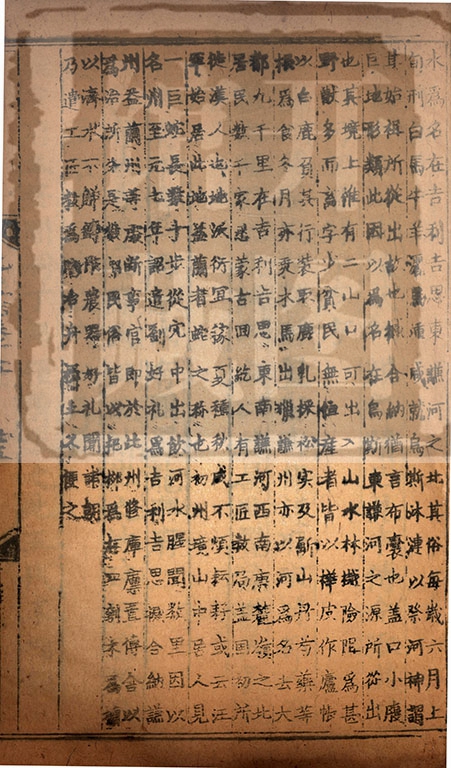 水為名在吉利吉思東謙河之北其俗每歲六月上
旬刑白馬牛羊灑馬湩咸就烏斯沐漣以祭河神謂
其始祖所從出故也撼合納猶言布囊也蓋口小腹
巨地形類此因以為名在烏斯東謙河之源所從出
也其境上惟有二山口可出入山水林樾險阻為甚
野獸多而畜字少貧民無恒產者皆以樺皮作廬帳
以白鹿負其行裝取鹿乳採松實及劚山丹芍藥等
根為食冬月亦乘木馬出獵謙州亦以河為名去大
都九千里在吉利吉思東南謙河西南唐麓嶺之北
居民數千家悉蒙古回紇人有工匠數局蓋國初所
徙漢人也地沃衍宜稼夏種秋成不煩耘耔或云汪
罕始居此地益蘭者蛇之稱也初州境山中居人見
一巨蛇長數十步從穴中出飲河水腥聞數里因以
名州至元七年詔遣劉好禮為吉利吉思撼合納謙
州益蘭州等處斷事官即於此州修庫廩置傳舍以
為治所先是數部民俗皆以杞柳為杯皿刳木為槽
以濟水不解鑄作農器好禮聞諸朝
乃遣工匠教為陶冶舟楫土人便之